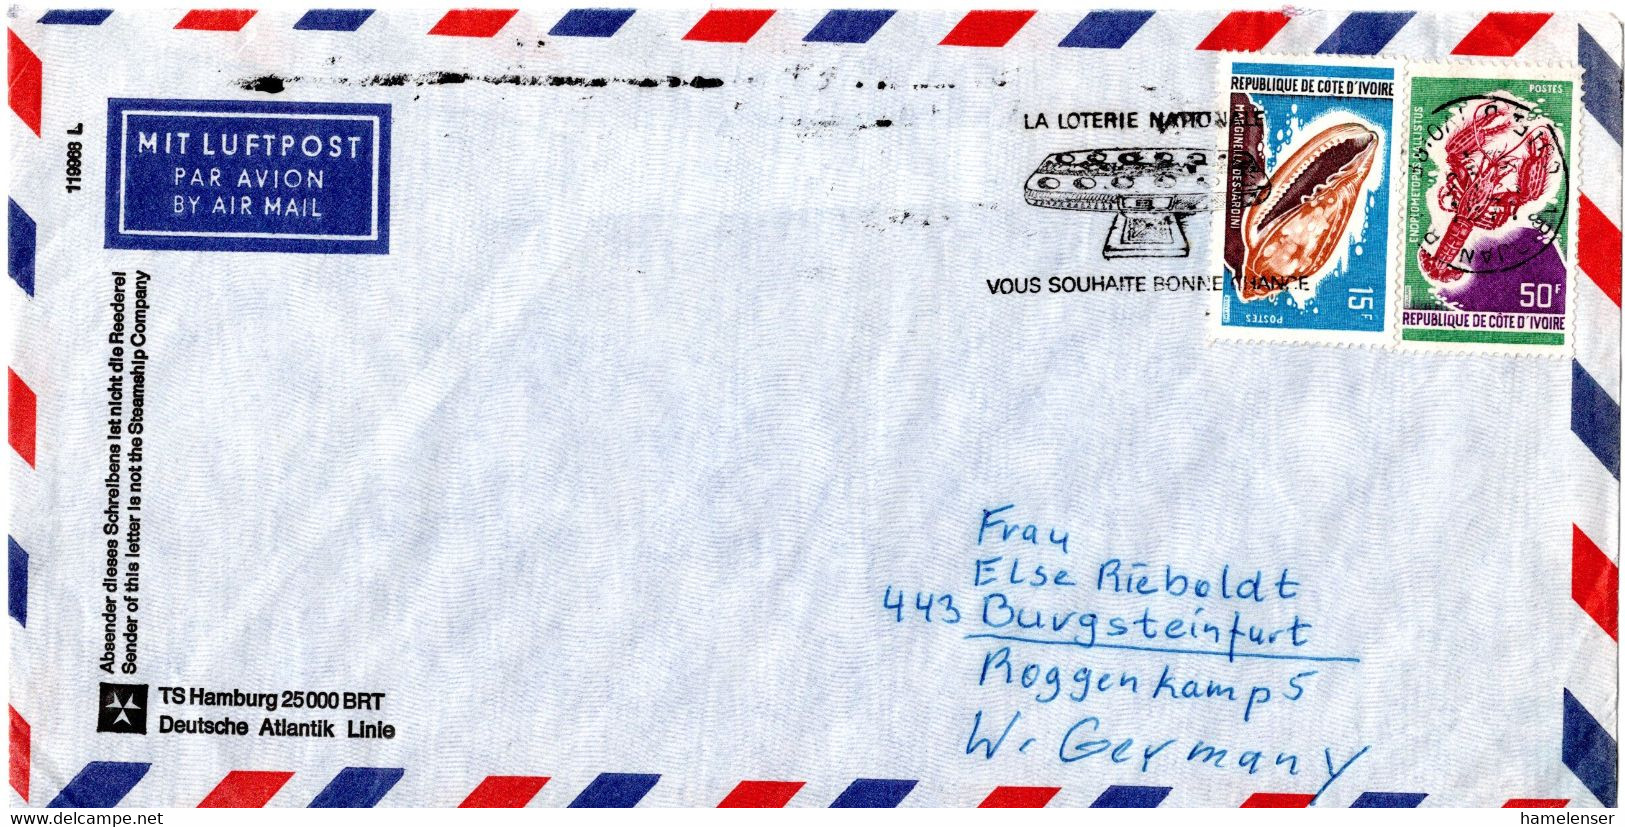 119968 L
MIT LUFTPOST
PAR AVION
BY AIR MAIL
Absender dieses Schreibens ist nicht die Reederei
Sender of this letter is not the Steamship Company
TS Hamburg 25000 BRT
Deutsche Atlantik Linie
LA LOTERIE NATIONALE
VOUS SOUHAITE BONNE CHANCE
REPUBLIQUE DE CÔTE D'IVOIRE
MARGINELLA DESJARDINI
15F
POSTES
POSTES
ENOPLOMETOPUS CALLISTUS
50F
REPUBLIQUE DE CÔTE D'IVOIRE
Frau
Else Rieboldt
443 Burgsteinfurt
Roggenkamp 5
W. Germany
hamelenser